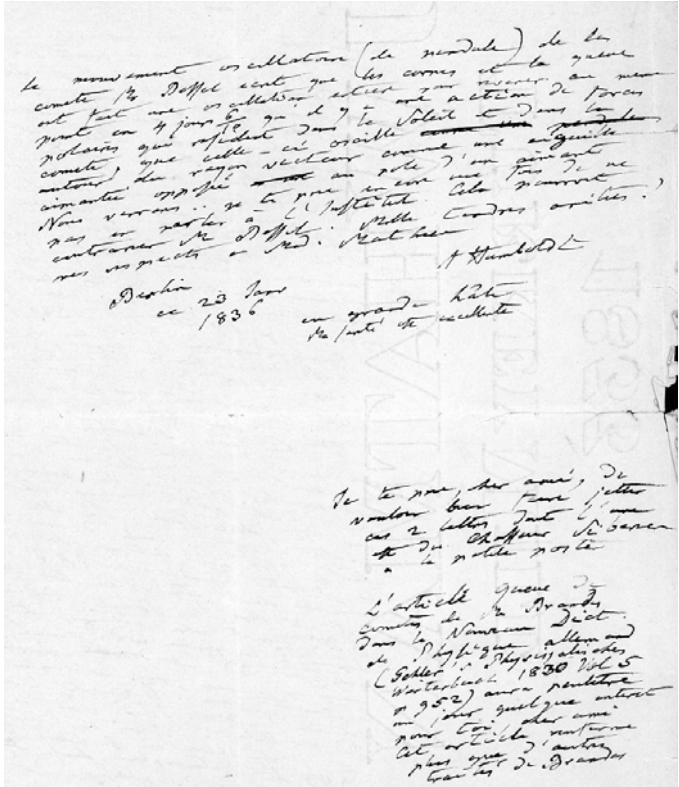 Le mouvement oscillatoire (de pendule) de la
comète. Mr Bessel écrit que les cornes et la queue
ont fait une oscillation entière pour revenir au même
point en 4 jours 6/10 qu'il y a une action de forces
polaires qui résident dans le Soleil et dans la
comète, que celle-ci oscille
autour du rayon vecteur comme une aiguille
aimantée opposée au pole d'un aimant
Nous verrons. Je te prie encore une fois de ne
pas en parler à l'Institut. Cela pourroit
contrarier Mr Bessel. Mille tendres amitiés.
mes respects a Mad. Mathieu
A Humboldt
Berlin
ce 23 Janv
1836
en grande hâte
Ma santé est excellente
Je te prie, cher ami, de
vouloir bien faire jetter
ces 2 lettres dont l'une
est du
a la petite poste
L'article queue de
comètes de Mr Brandes
dans le Nouveau Dict.
de Physique allemand
(Gehler's Physicalisches
Worterbuch 1830 Vol 5
p 952) aura peutêtre
un jour quelque intéret
pour toi, cher ami
Cet article renferme
plus que d'autres
traités de Brandes